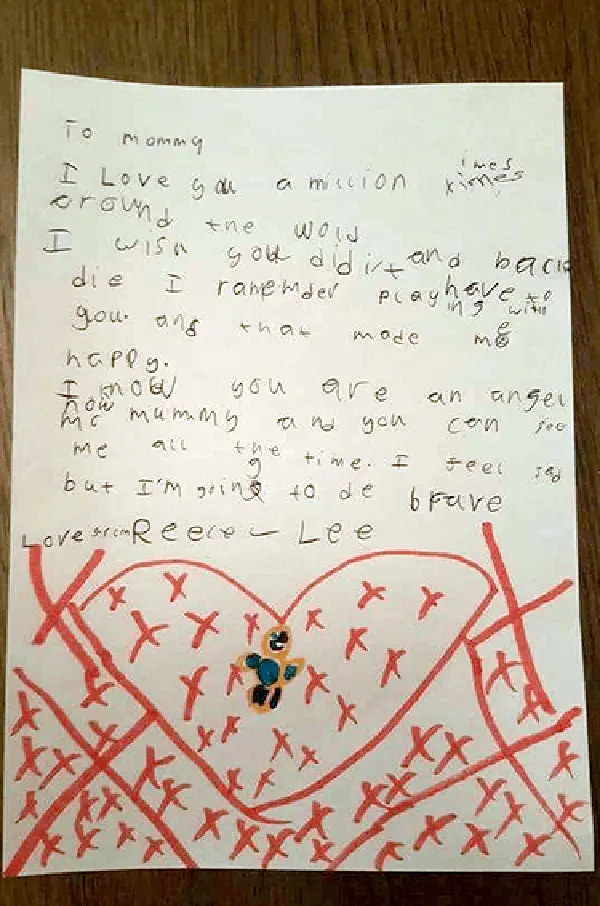 To mommy
I Love you a million times
around the wold
I wish you did it and back
die I ramemder playing with have to
you. and that made me
happy.
I know you are an angel
now mc mummy and you can see
me all the time. I feel sad
but I'm going to de brave
Love from Reece - Lee